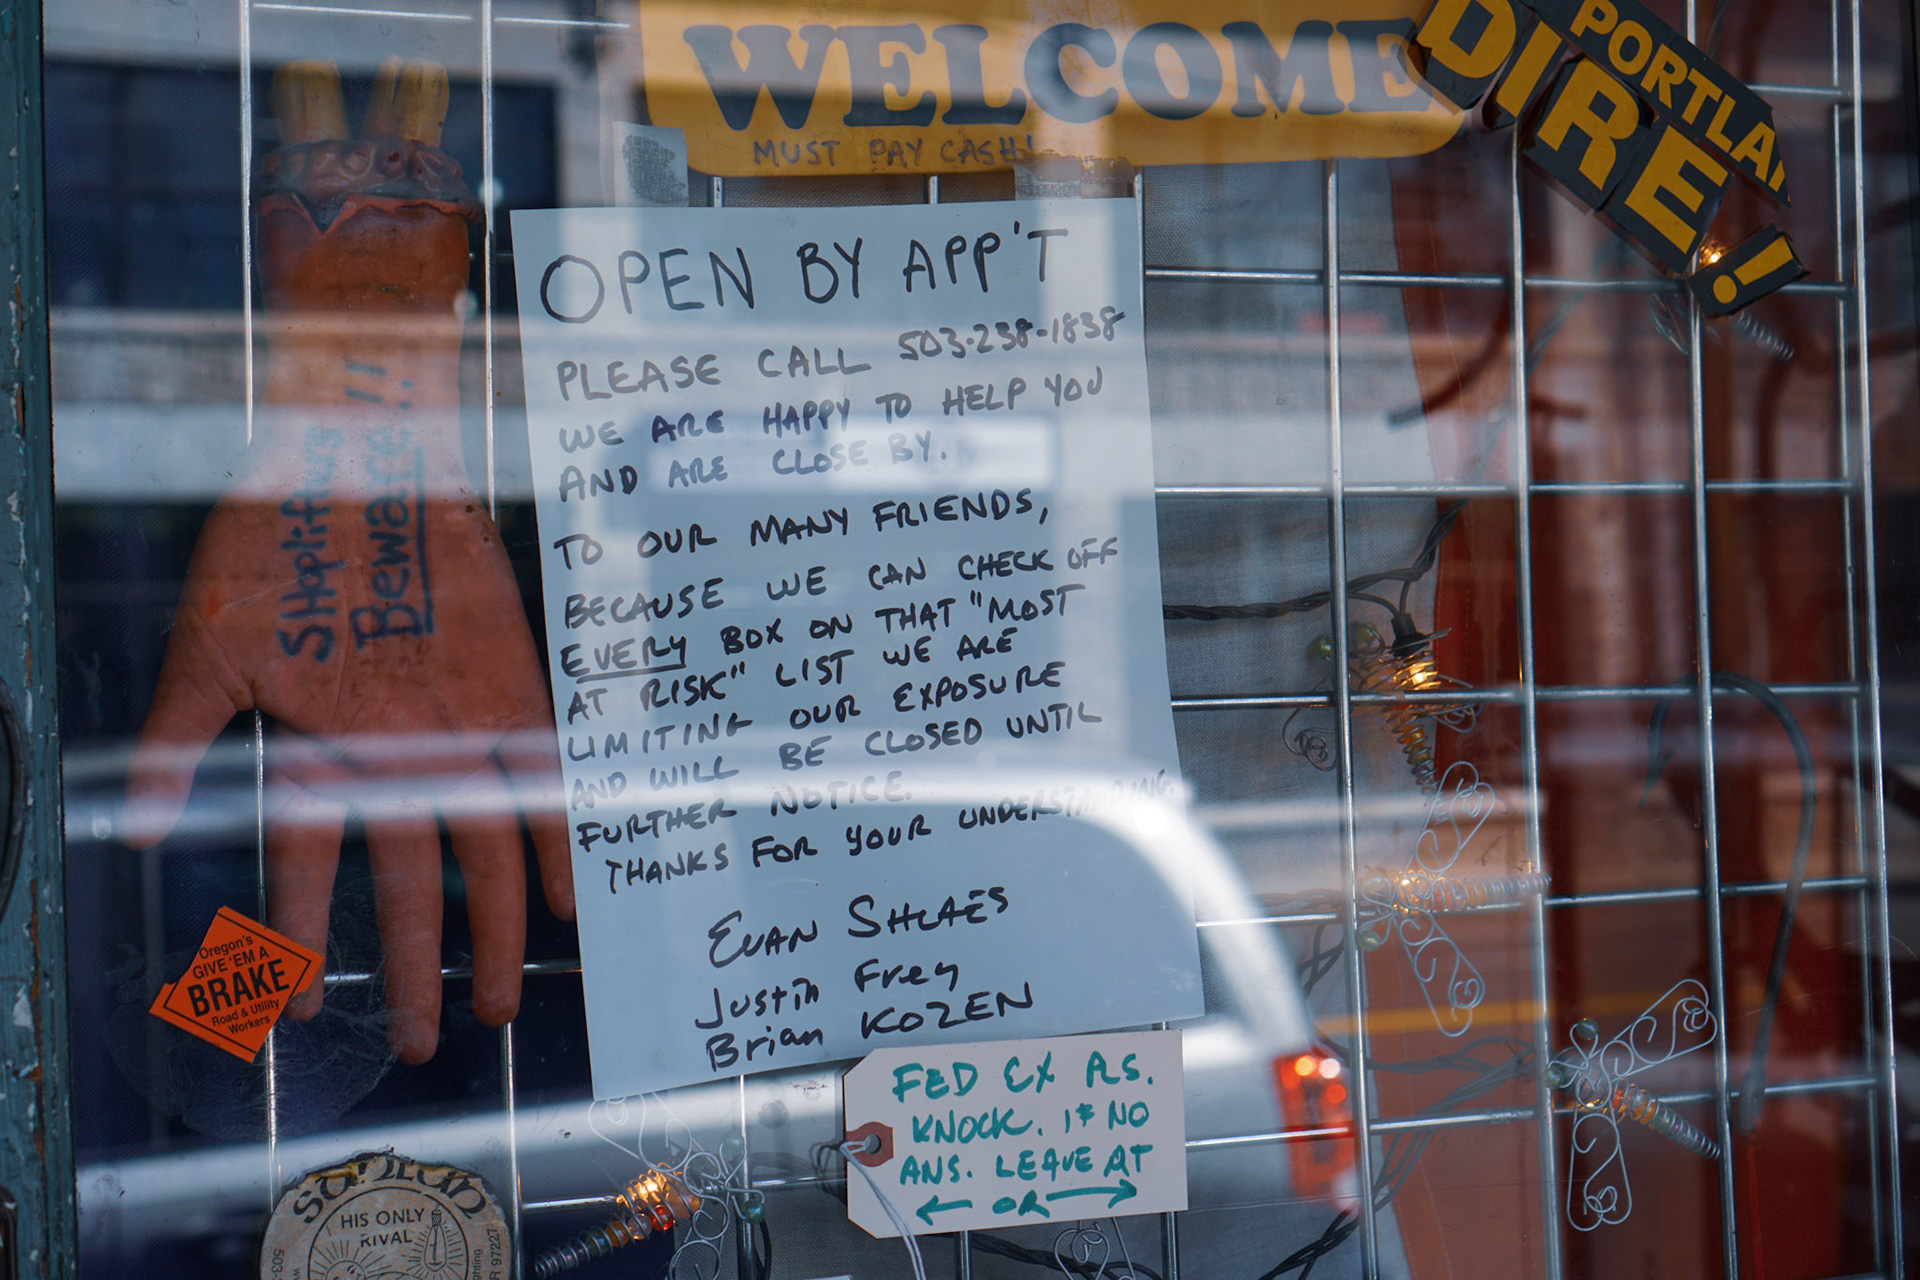 WELCOME
MUST PAY CASH!
PORTLAN
DIRE!
OPEN BY APP'T
PLEASE CALL 503-238-1838
WE ARE HAPPY TO HELP YOU
AND ARE CLOSE BY.
TO OUR MANY FRIENDS,
BECAUSE WE CAN CHECK OFF
EVERY BOX ON THAT "MOST
AT RISK" LIST WE ARE
LIMITING OUR EXPOSURE
AND WILL BE CLOSED UNTIL
FURTHER NOTICE.
THANKS FOR YOUR UNDERSTANDING.
EVAN SHLAES
Justin Frey
Brian KOZEN
SHoplifters
Beware!!
Oregon's
GIVE 'EM A
BRAKE
Road & Utility
Workers
FED EX PLS.
KNOCK. IF NO
ANS. LEAVE AT
← OR →
HIS ONLY
RIVAL
503-
R 97227